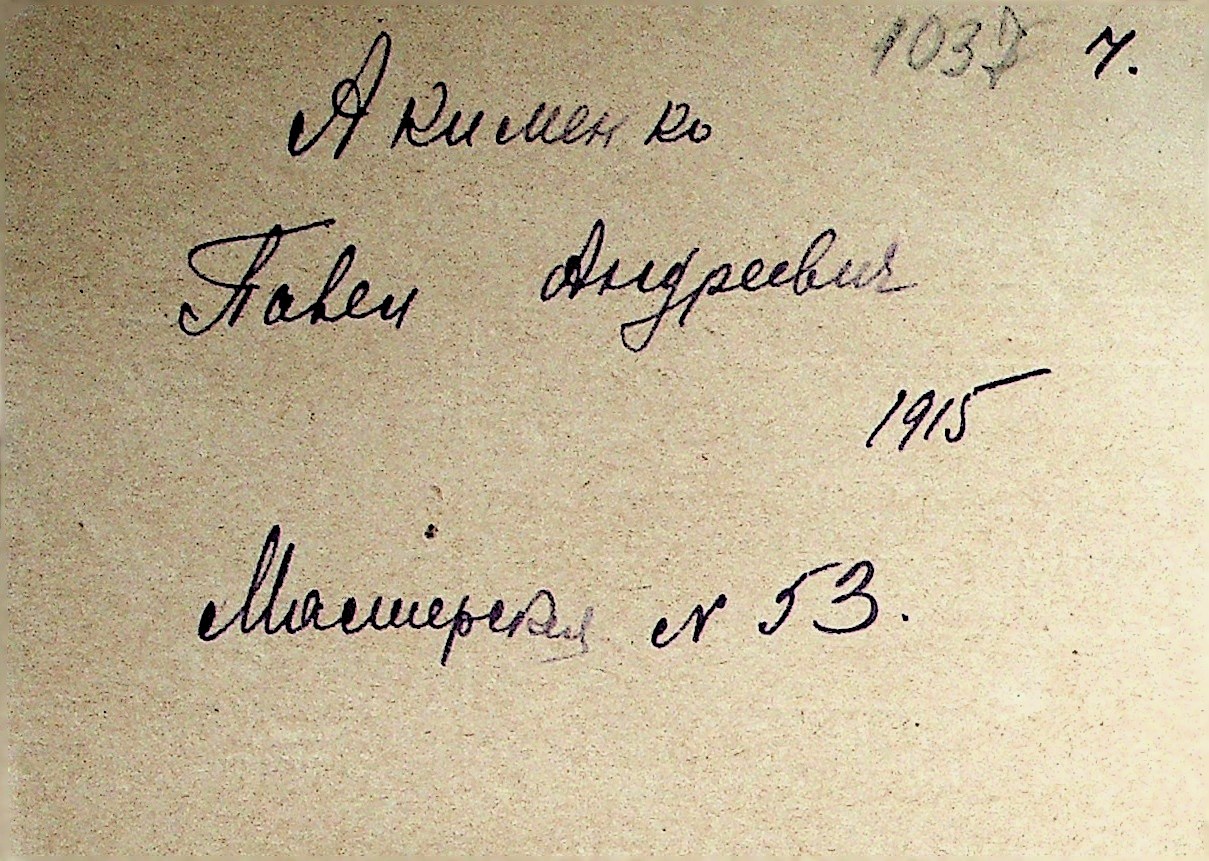 1037 ч.
Акименко
Павел Андреевич
1915
Мастерская N 53.